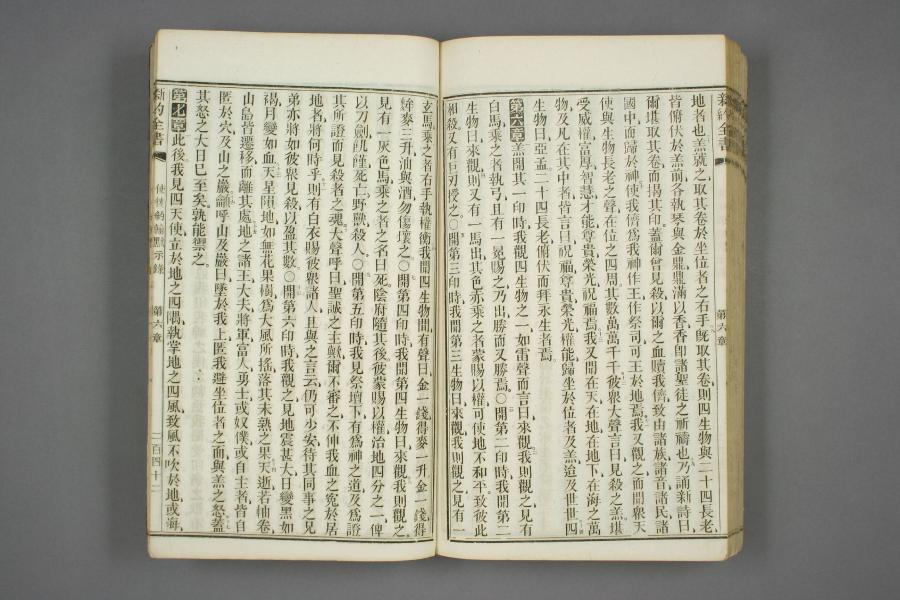 新約全書
第六章
地者也羔就之取其卷於坐位者之右手旣取其卷則四生物與二十四長老
皆俯伏於羔前各執琴與金鼎鼎滿以香香卽諸聖徒之祈禱也乃誦新詩曰
爾堪取其卷而揚其印蓋爾曾見殺以爾之血贖我儕致由諸族諸音諸民諸
國中而歸於神使我儕爲我神作王作祭司可王於地焉我又觀之而聞衆天
使與生物長老之聲在位之四周其數萬萬千千彼衆大聲言曰見殺之羔堪
受威權富厚智慧才能尊貴榮光祝福焉我又聞在天在地在地下在海之萬
物及凡在其中者皆言曰祝福尊貴榮光權能歸坐於位者及羔迨及世世四
生物曰亞孟二十四長老俯伏而拜永生者焉
第六章羔開其一印時我觀四生物之一如雷聲而言曰來觀我則觀之見有
白馬乘之者執弓且有一冕賜之乃出勝而又勝焉○開第二印時我聞第二
生物曰來觀則又有一馬出其色亦乘之者蒙賜以權可使地不和平致彼此
相殺又有巨刃授之○開第三印時我聞第三生物曰來觀我則觀之見有一
玄馬乘之者右手執權衡我聞四生物間有聲曰金一錢得麥一升金一錢得
麰麥三升油與酒勿傷壞之○開第四印時我聞第四生物曰來觀我則觀之
見有一灰色馬乘之者之名曰死陰府隨其後彼蒙賜以權治地四分之一俾
以刀劍飢饉死亡野獸殺人○開第五印時我見祭壇下有爲神之道及爲證
其所證而見殺者之魂大聲呼曰聖誠之主歟爾不審之不伸我血之寃於居
地者將何時乎則有白衣賜彼衆諸人且與之言云仍可少安待其同事之兄
弟亦將如彼衆見殺以盈其數○開第六印時我觀之見地震甚大日變黑如
褐月變如血天星隕地如無花果樹爲大風所搖落其未熟之果天逝若柚卷
山島皆遷移而離其處地之諸王大夫將軍富人勇士或奴僕或自主者皆自
匿於穴及山之巖中呼山及巖曰墜於我上匿我避坐位者之面與羔之怒蓋
其怒之大日已至矣孰能禦之
第七章此後我見四天使立於地之四隅執掌地之四風致風不吹於地或海
新約全書
使徒約翰默示錄
第六章
一百四十二